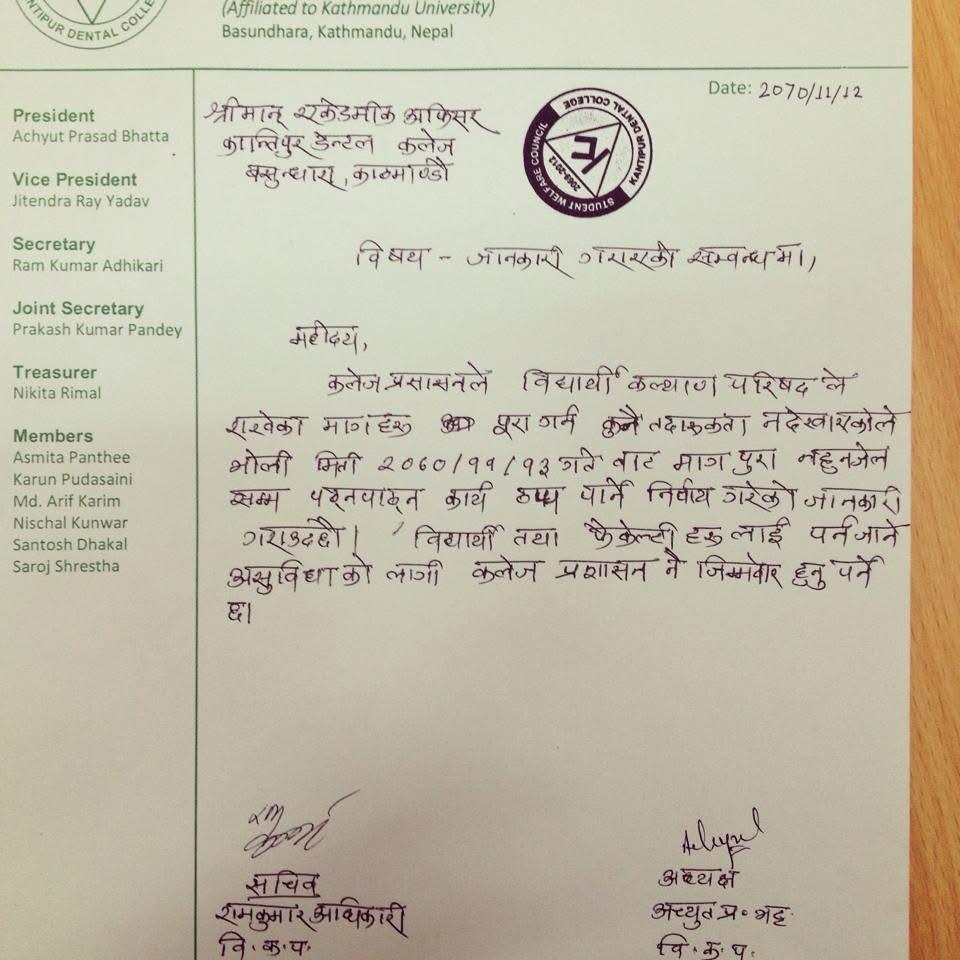 NTIPUR DENTAL COLLE
(Affiliated to Kathmandu University)
Basundhara, Kathmandu, Nepal
Date: 2070/11/12
President
Achyut Prasad Bhatta
Vice President
Jitendra Ray Yadav
Secretary
Ram Kumar Adhikari
Joint Secretary
Prakash Kumar Pandey
Treasurer
Nikita Rimal
Members
Asmita Panthee
Karun Pudasaini
Md. Arif Karim
Nischal Kunwar
Santosh Dhakal
Saroj Shrestha
श्रीमान् एकेडमीक अफिसर
कान्तिपुर डेन्टल कलेज
बसुन्धारा, काठमाण्डौ
STUDENT WELFARE COUNCIL
KANTIPUR DENTAL COLLEGE
2069-2012
विषय - जानकारी गराएको सम्वन्धमा,
महोदय,
कलेज प्रसासनले विद्यार्थी कल्याण परिषद ले
राखेका मागहरु पूरा गर्न कुनै तदारुकता नदेखाएकोले
भोली मिती २०६०/११/१३ गते बाट माग पुरा नहुनजेल
सम्म पठनपाठन कार्य ठप्प पार्ने निर्णय गरेको जानकारी
गराउदछौ। विद्यार्थी तथा फेकेल्टी हरु लाई पर्न जाने
असुविधा को लागी कलेज प्रशासन नै जिम्मेवार हुनु पर्ने
छ।
सचिव
रामकुमार अधिकारी
वि.क.प.
अध्यक्ष
अच्युत प्र. भट्ट
वि.क.प.